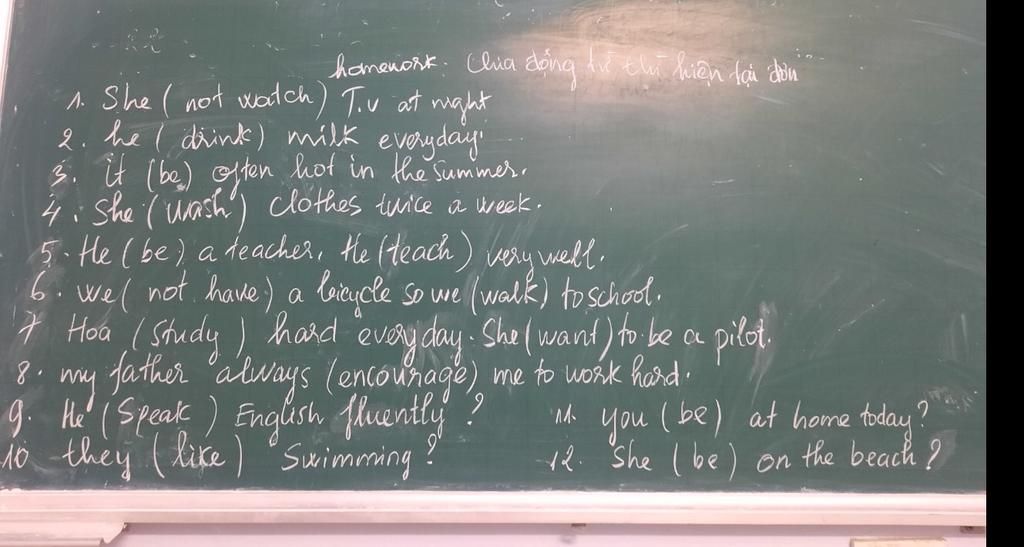 homework. Chia động từ thì hiện tại đơn
1. She ( not watch ) T.v at night
2. he ( drink ) milk everyday.
3. it (be) often hot in the summer.
4. She (wash) clothes twice a week.
5. He (be) a teacher. He (teach) very well.
6. we ( not have) a bicycle so we (walk) to school.
7 Hoa (study) hard everyday. She (want) to be a pilot.
8. my father always (encourage) me to work hard.
9. He (Speak) English fluently ?
10 they (like) Swimming ?
11. you (be) at home today?
12. She (be) on the beach ?